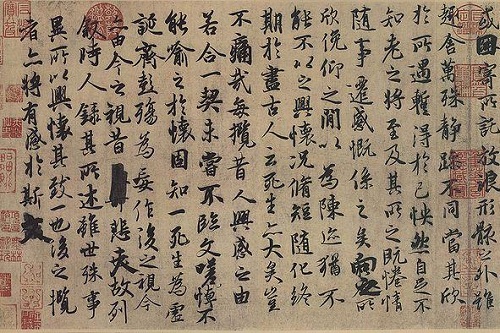 或因寄所託放浪形骸之外雖
趣舍萬殊靜躁不同當其欣
於所遇蹔得於己怏然自足不
知老之將至及其所之既惓情
隨事遷感慨係之矣向之所
欣俛仰之間以為陳迹猶不
能不以之興懷況脩短隨化終
期於盡古人云死生亦大矣豈
不痛哉每攬昔人興感之由
若合一契未嘗不臨文嗟悼不
能喻之於懷固知一死生為虛
誕齊彭殤為妄作後之視今
亦由今之視昔悲夫故列
敘時人錄其所述雖世殊事
異所以興懷其致一也後之攬
者亦將有感於斯文